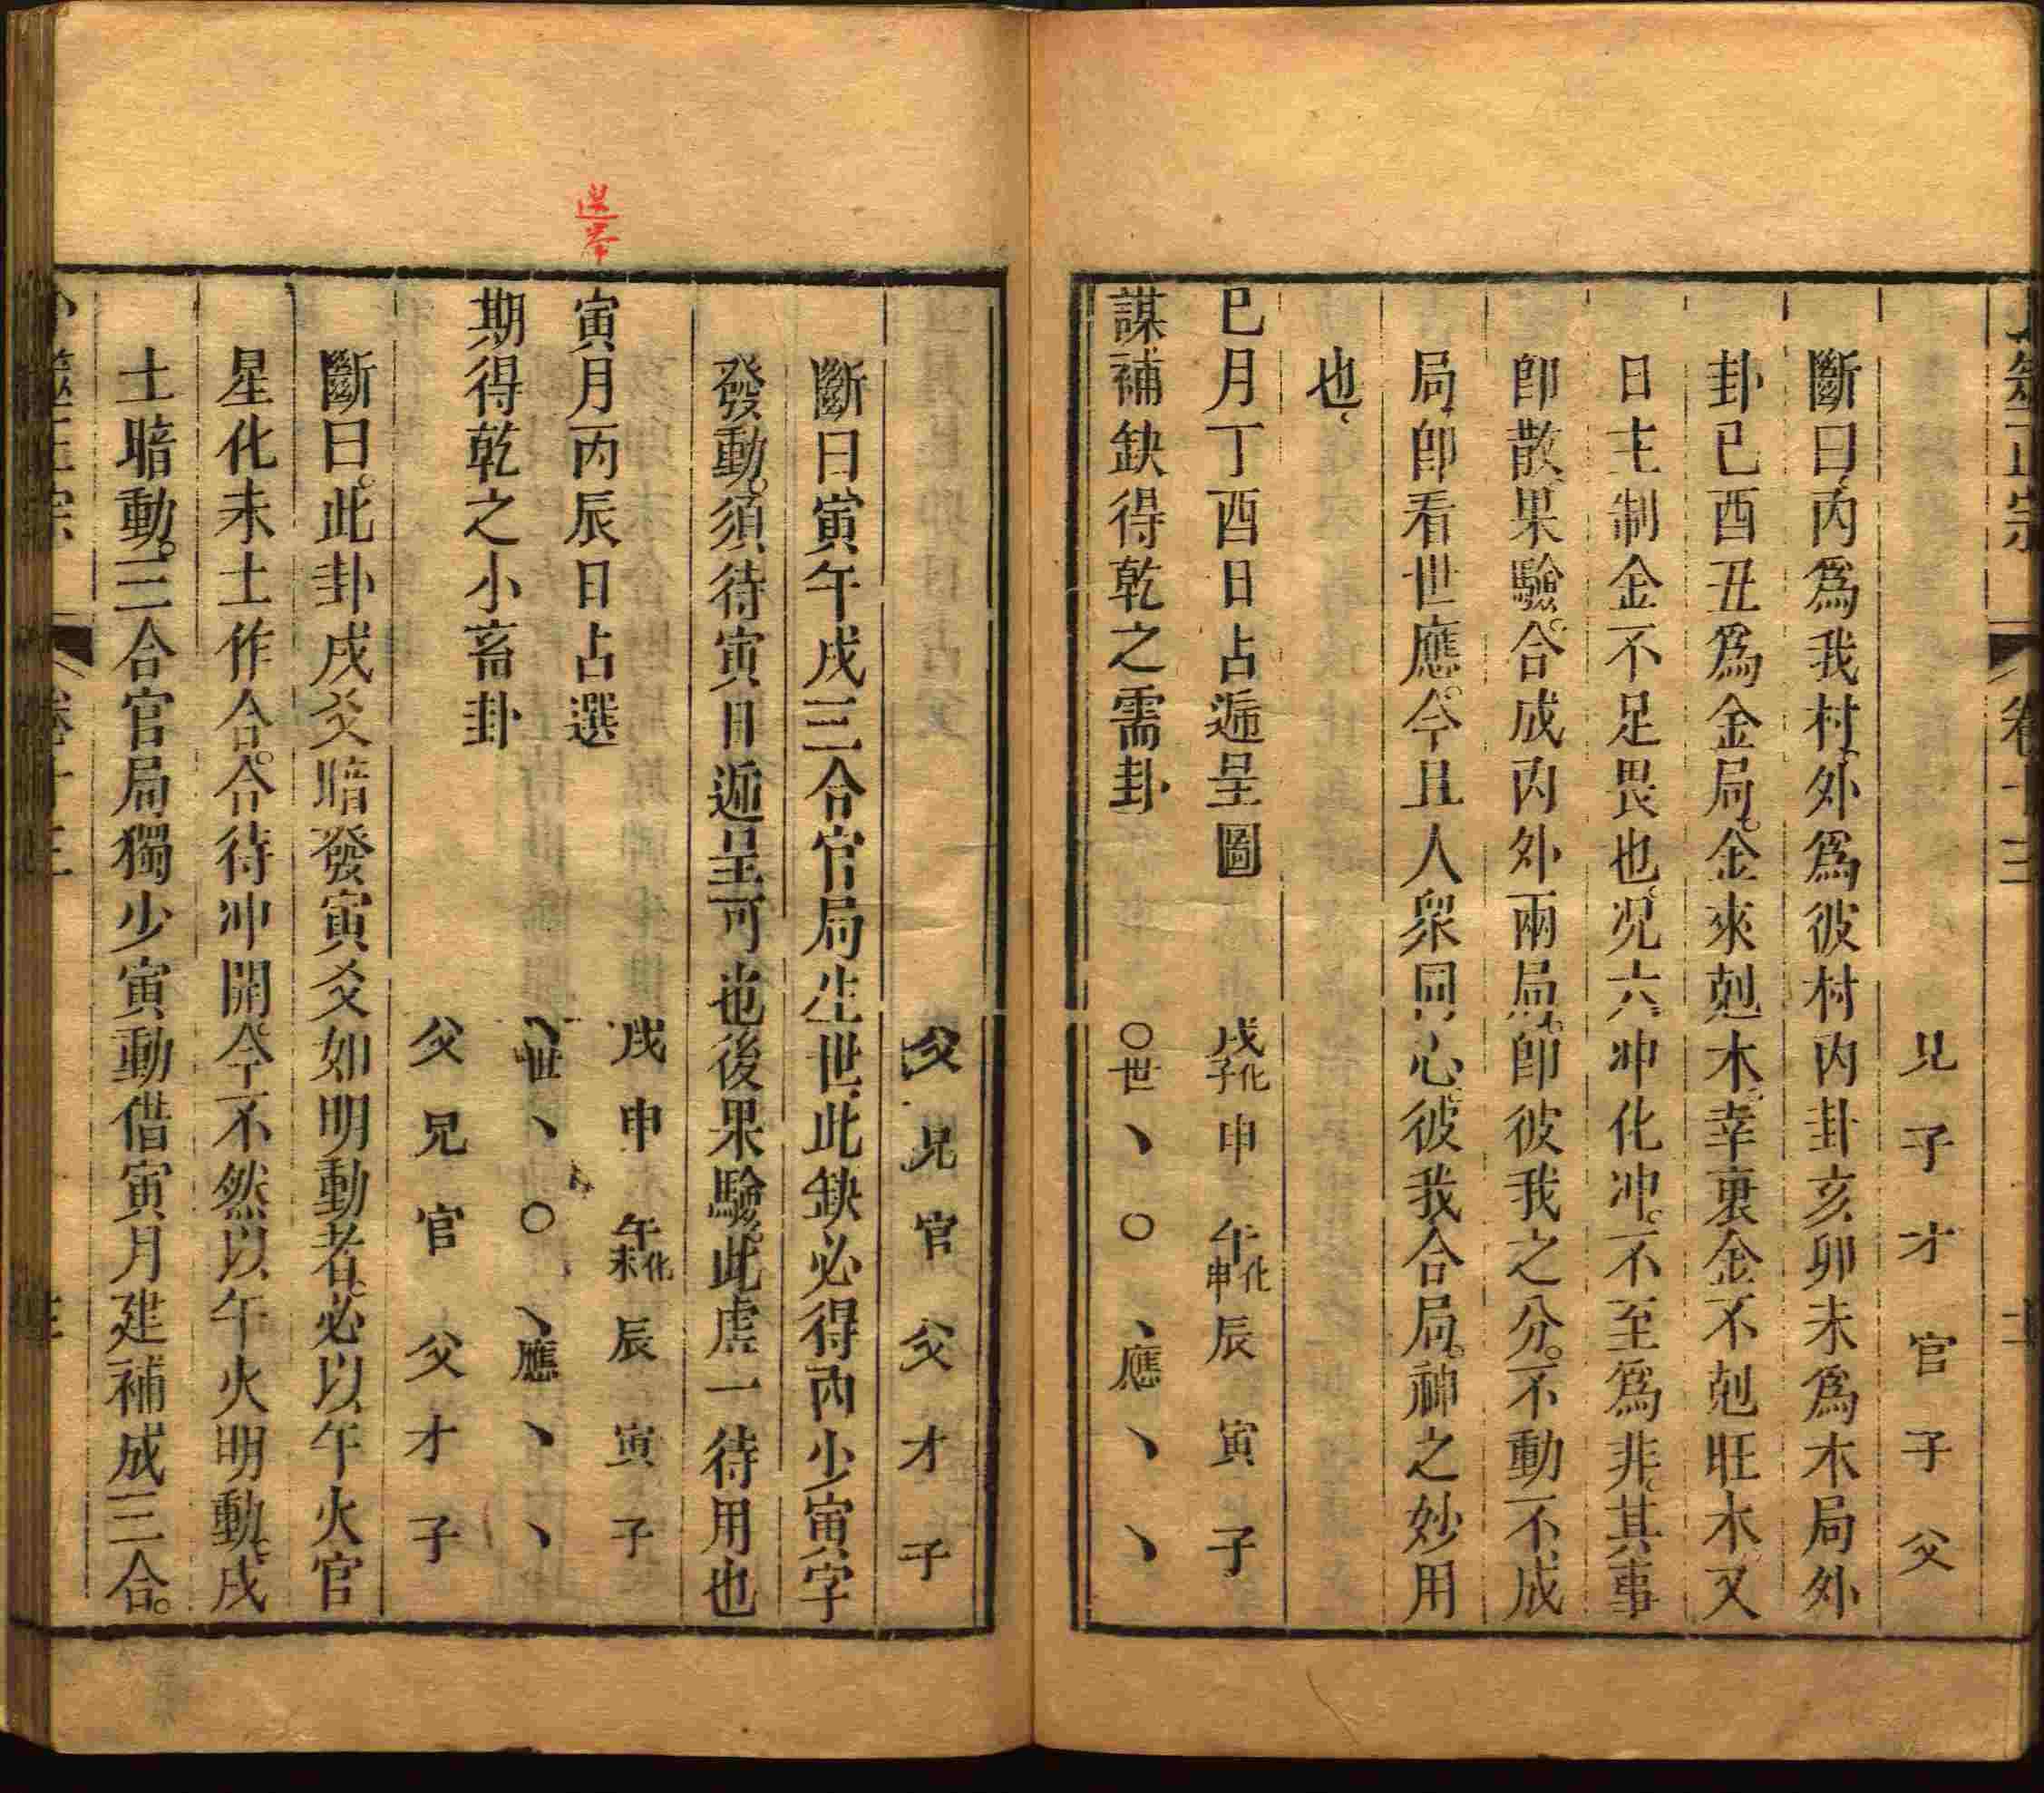 卜筮正宗 卷十三
兄子才官子父
斷曰、內爲我村、外爲彼村內卦亥卯未爲木局外
卦巳酉丑爲金局。金來剋木、幸衰金不剋旺木、又
日主制金不足畏也、况六冲化冲。不至爲非。其事
即散、果驗。合成內外兩局、即彼我之分。不動不成
局、即看世應。今且人衆同心、彼我合局。神之妙用
也、
巳月丁酉日占遞呈圖 戌化子申午化申辰寅子
謀補缺得乾之需卦 〇世丶〇丶應丶丶
父兄官父才子
斷曰寅午戌三合官局生世、此缺必得內少寅字
發動。須待寅日遞呈可也後果驗。此虛一待用也
選舉
寅月丙辰日占選 戌申午化未辰寅子
期得乾之小畜卦 丶世丶〇丶應丶丶
父兄官父才子
斷曰。此卦戌爻暗發寅爻如明動者。必以午火官
星化未土作合。合待冲開。今不然以午火明動。戌
土暗動。三合官局獨少寅動借寅月建補成三合。
卜筮正宗 卷十三